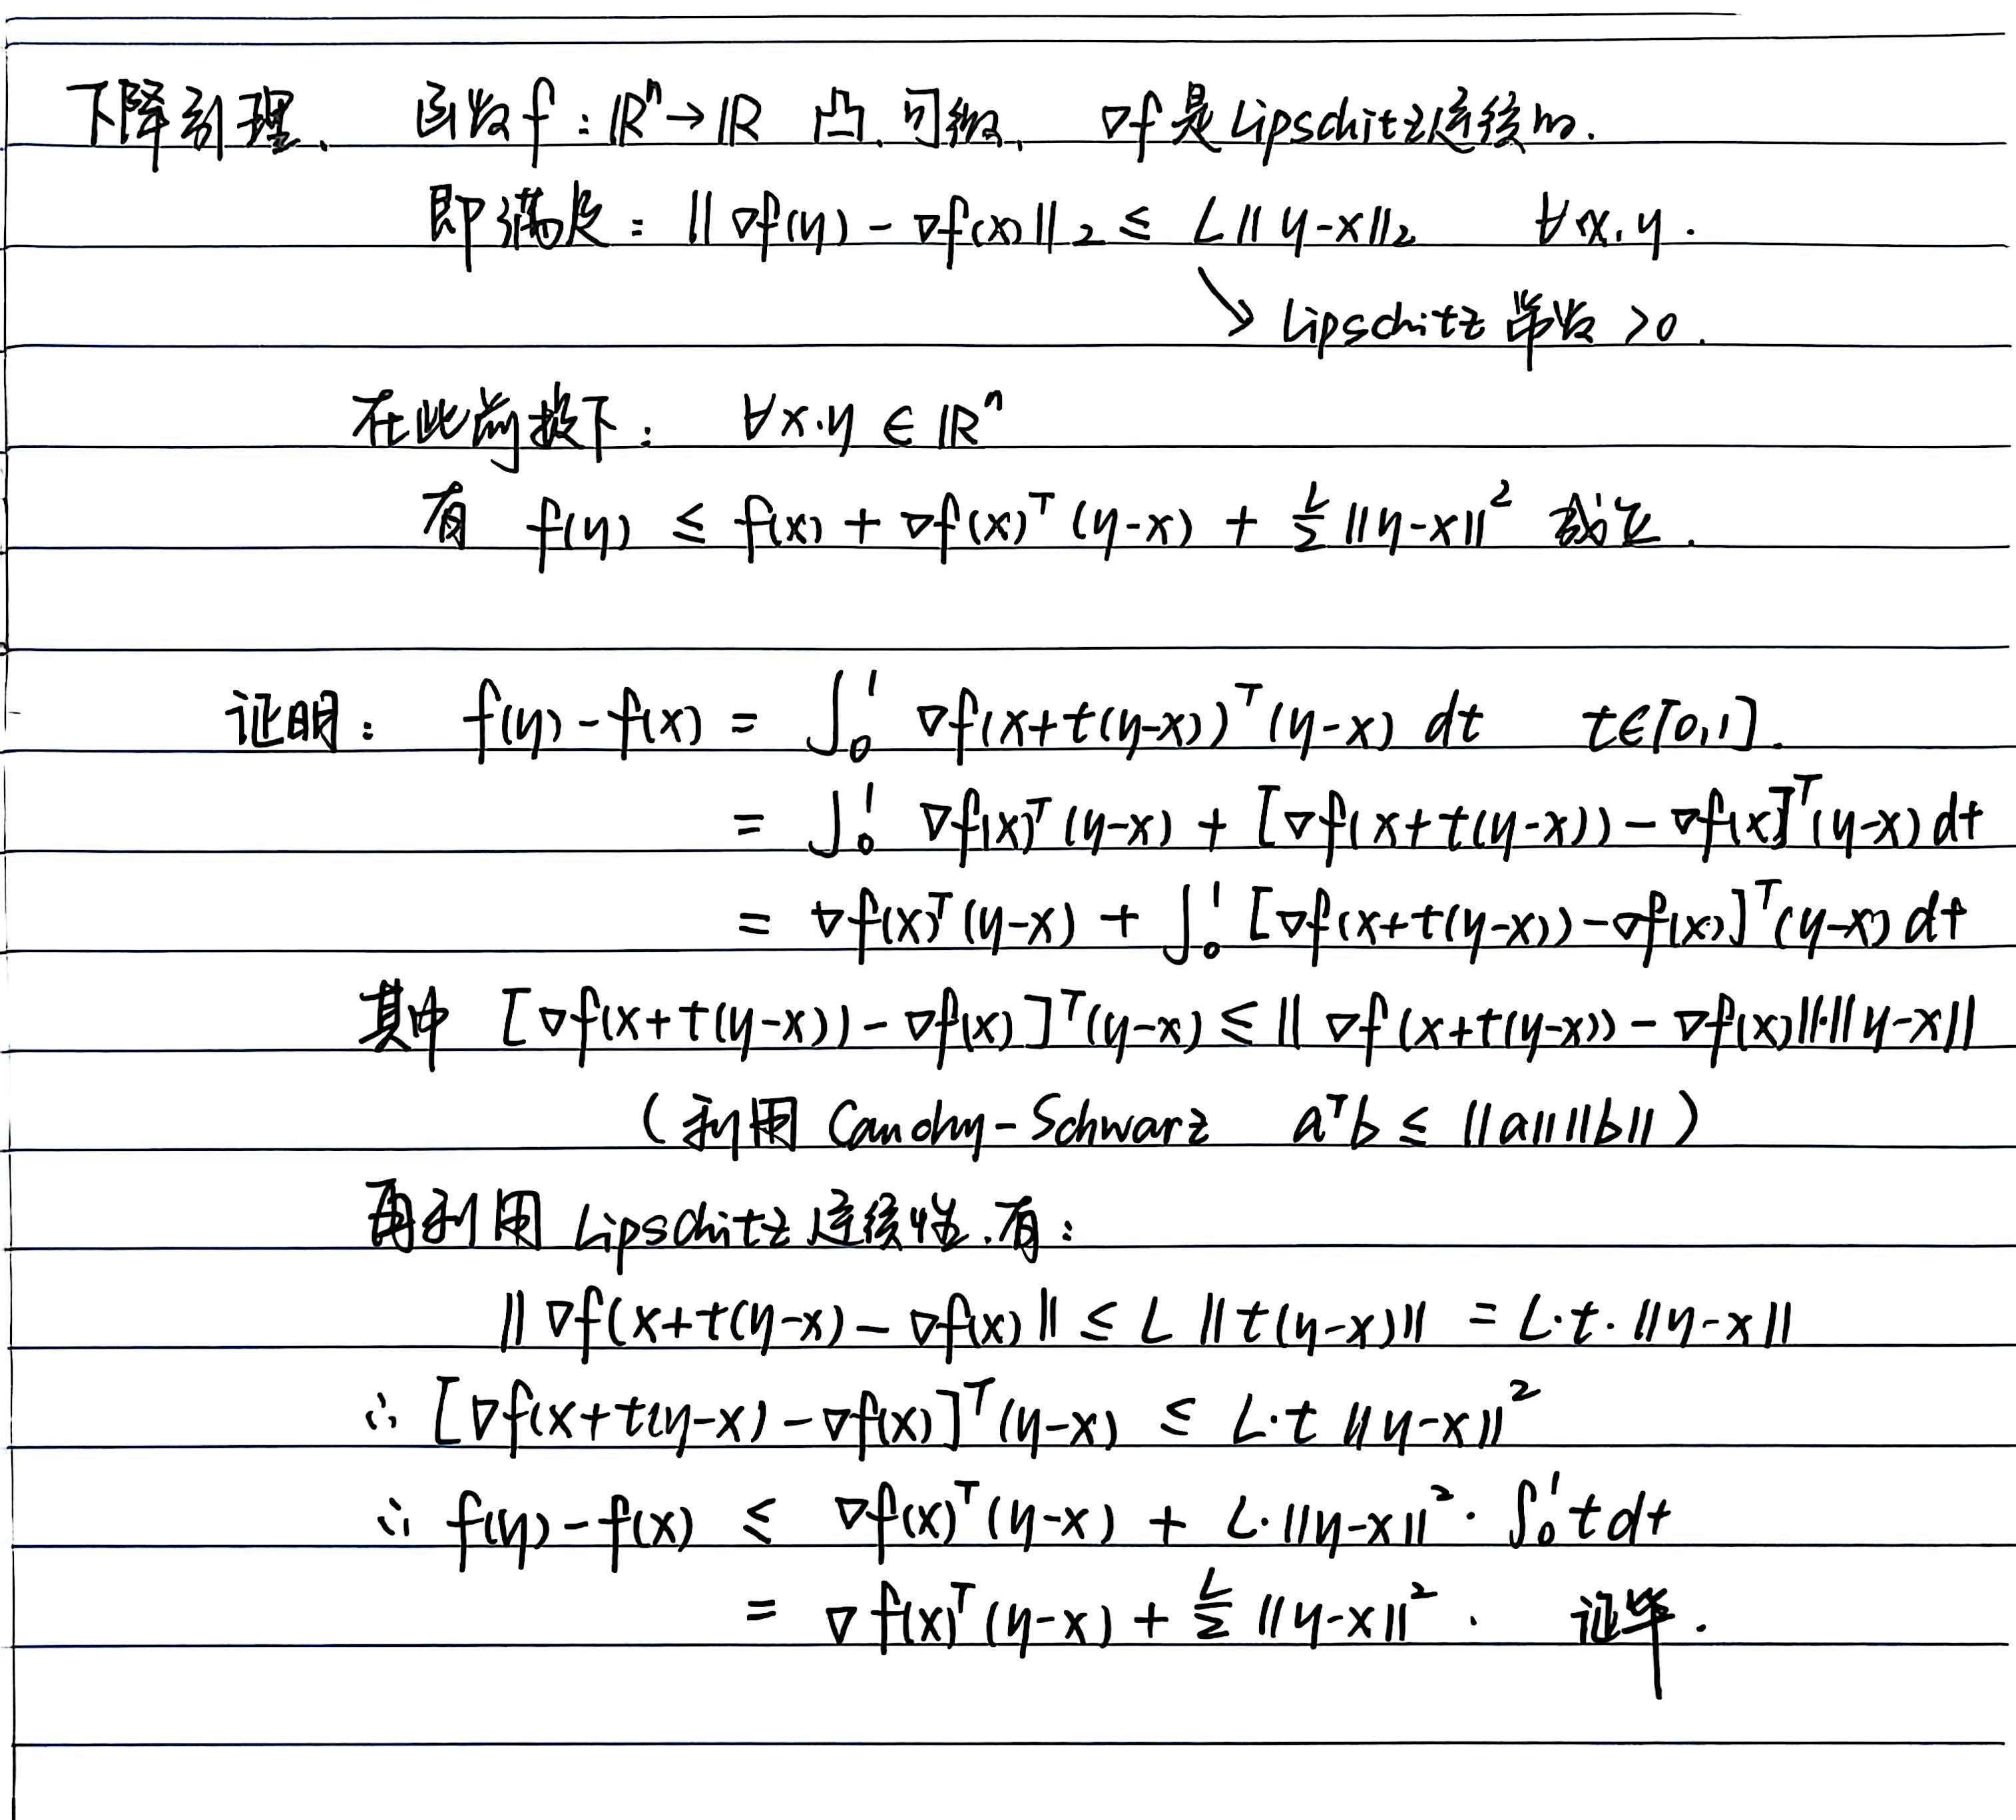 下降引理、 函数f:ℝⁿ→ℝ 凸.可微, ∇f是Lipschitz连续的.
即满足:||∇f(y)-∇f(x)||₂ ≤ L||y-x||₂ ∀x,y.
↘ Lipschitz 常数 >0.
在此前提下: ∀x.y ∈ ℝⁿ
有 f(y) ≤ f(x) + ∇f(x)ᵀ(y-x) + L/2 ||y-x||² 成立.
证明: f(y)-f(x) = ∫₀¹ ∇f(x+t(y-x))ᵀ(y-x) dt t∈[0,1].
= ∫₀¹ ∇f(x)ᵀ(y-x) + [∇f(x+t(y-x))-∇f(x]ᵀ(y-x)dt
= ∇f(x)ᵀ(y-x) + ∫₀¹ [∇f(x+t(y-x))-∇f(x)]ᵀ(y-x) dt
其中 [∇f(x+t(y-x))-∇f(x)]ᵀ(y-x) ≤ ||∇f(x+t(y-x))-∇f(x)||·||y-x||
(利用 Cauchy-Schwarz aᵀb ≤ ||a||||b||)
再利用 Lipschitz 连续性.有:
||∇f(x+t(y-x)-∇f(x)|| ≤ L ||t(y-x)|| = L·t·||y-x||
∴ [∇f(x+t(y-x)-∇f(x)]ᵀ(y-x) ≤ L·t ||y-x||²
∴ f(y)-f(x) ≤ ∇f(x)ᵀ(y-x) + L·||y-x||²·∫₀¹t dt
= ∇f(x)ᵀ(y-x) + L/2 ||y-x||². 证毕.